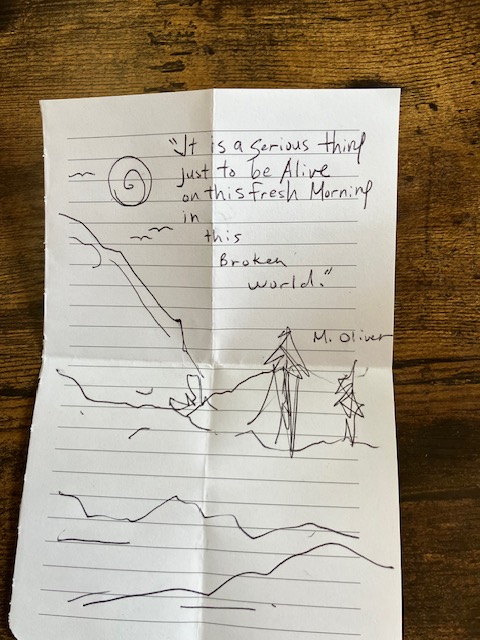 "It is a serious thing
just to be Alive
on this fresh Morning
in
this
Broken
world."
M. Oliver